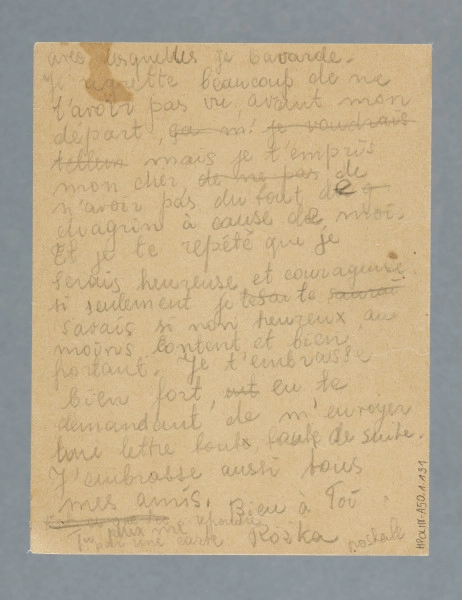 avec lesquelles je bavarde.
Je regrette beaucoup de ne
t'avoir pas vu avant mon
départ, ça m' je voudrais
mais je t'empris
mon cher, de ne pas de
n'avoir pas du tout de
chagrin à cause de moi.
Et je te repété que je
serais heureuse et courageuse
si seulement je te
savais si non heureux, au
moins content et bien
portant. Je t'embrasse
bien fort, en te
demandant de m'envoyer
une lettre toute de suite.
J'embrasse aussi tous
mes amis.
Bien à Toi
Tu peux me repondre
par une carte postale
Rośka